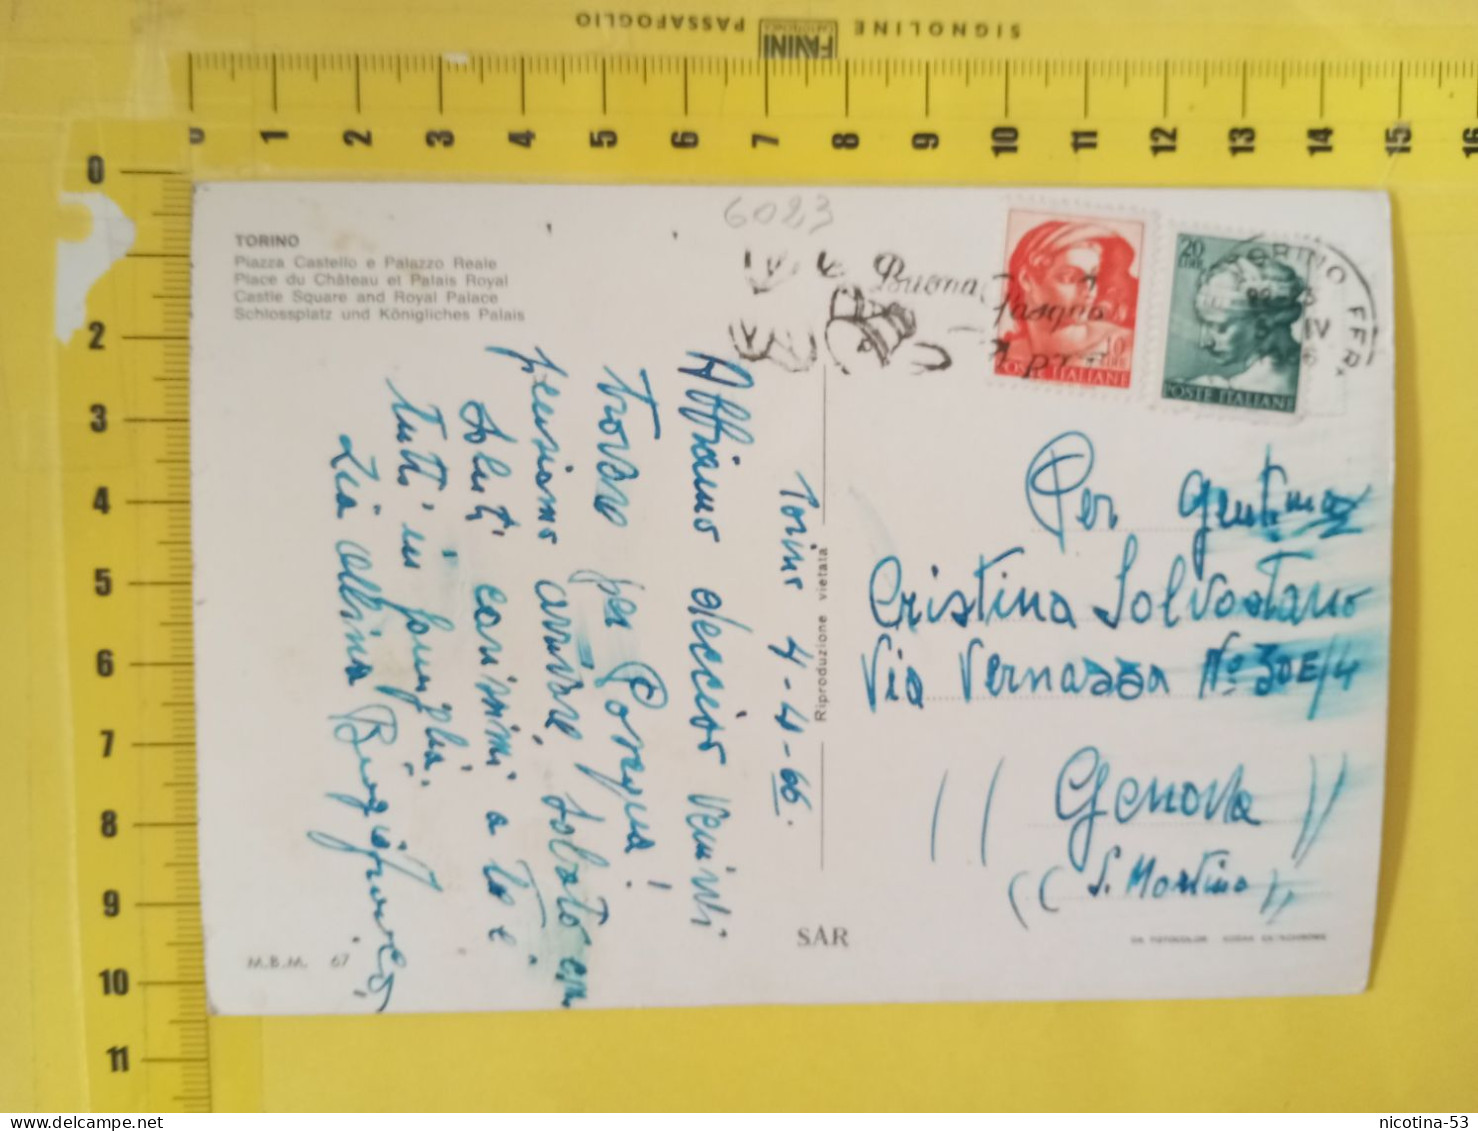 SIGNOLINE FANINI PASSAFOGLIO
0 1 2 3 4 5 6 7 8 9 10 11 12 13 14 15 16
0
2
3
4
5
6
7
8
9
10
11
6023
TORINO
Piazza Castello e Palazzo Reale
Place du Château et Palais Royal
Castle Square and Royal Palace
Schlossplatz und Königliches Palais
Buona
Pasqua
P.T.
10
LIRE
POSTE ITALIANE
20
LIRE
POSTE ITALIANE
TORINO FERR
IV
Torino 4-4-66.
Abbiamo deciso venirvi
Trovare per Pasqua!
pensiamo arrivare sabato
saluti carissimi a Te e
Tutti in famiglia.
Zia Albina
Riproduzione vietata
Per gentma
Cristina Salvostano
Via Vernazza No 30E/4
((Genova))
((S. Martino))
SAR
M.B.M. 67